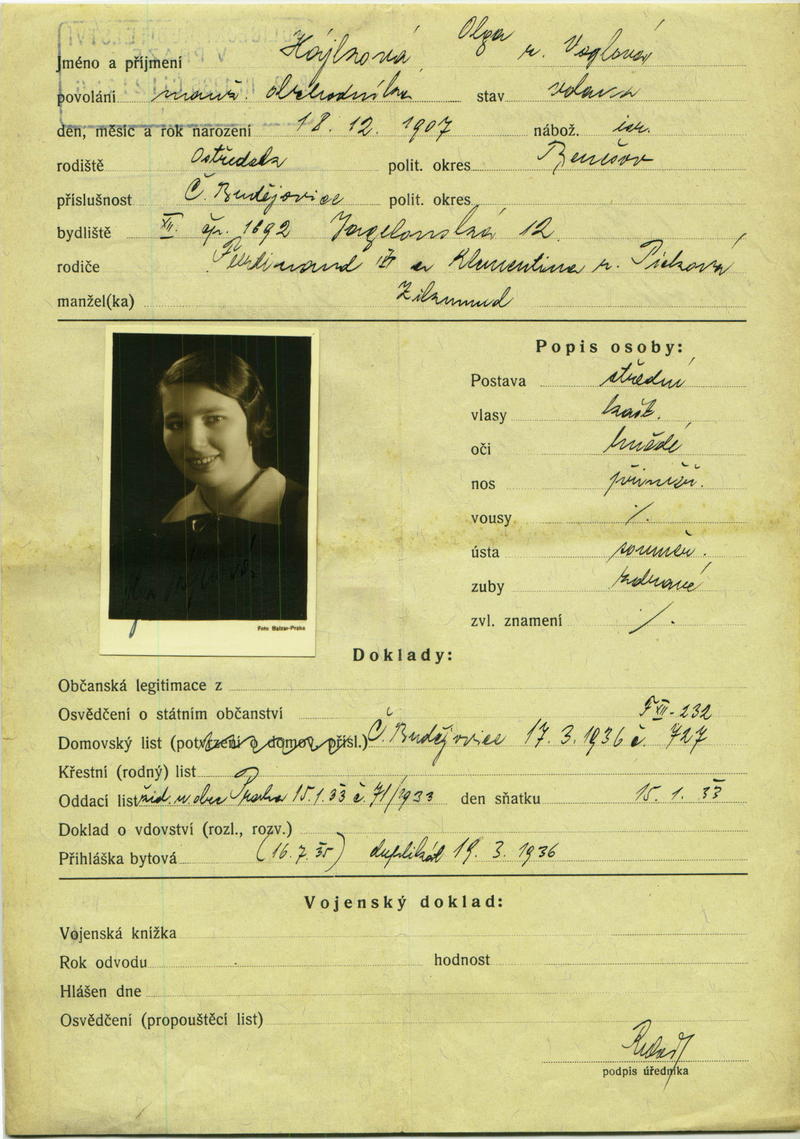 Jméno a příjmení Hájková Olga r. Voglová
povolání manž. obchodníka stav vdaná
den, měsíc a rok narození 18. 12. 1907 nábož. isr.
rodiště Ostředek polit. okres Benešov
příslušnost Č. Budějovice polit. okres
bydliště XII. čp. 1692 Jagelonská 12
rodiče Ferdinand a Klementina r. Picková
manžel(ka) Zikmund
Popis osoby:
Postava střední
vlasy kašt.
oči hnědé
nos přiměř.
vousy /.
ústa souměr.
zuby zdravé
zvl. znamení /.
Foto Balzar-Praha
Doklady:
Občanská legitimace z
Osvědčení o státním občanství F XII - 232
Domovský list (potvrzení o domov. přísl.) Č. Budějovice 17. 3. 1936 č. 727
Křestní (rodný) list
Oddací list žid. n. obec Praha 15. 1. 33 č. 71/1933 den sňatku 15. 1. 33
Doklad o vdovství (rozl., rozv.)
Přihláška bytová (16. 7. 35) duplikát 19. 3. 1936
Vojenský doklad:
Vojenská knížka
Rok odvodu hodnost
Hlášen dne
Osvědčení (propouštěcí list)
podpis úředníka